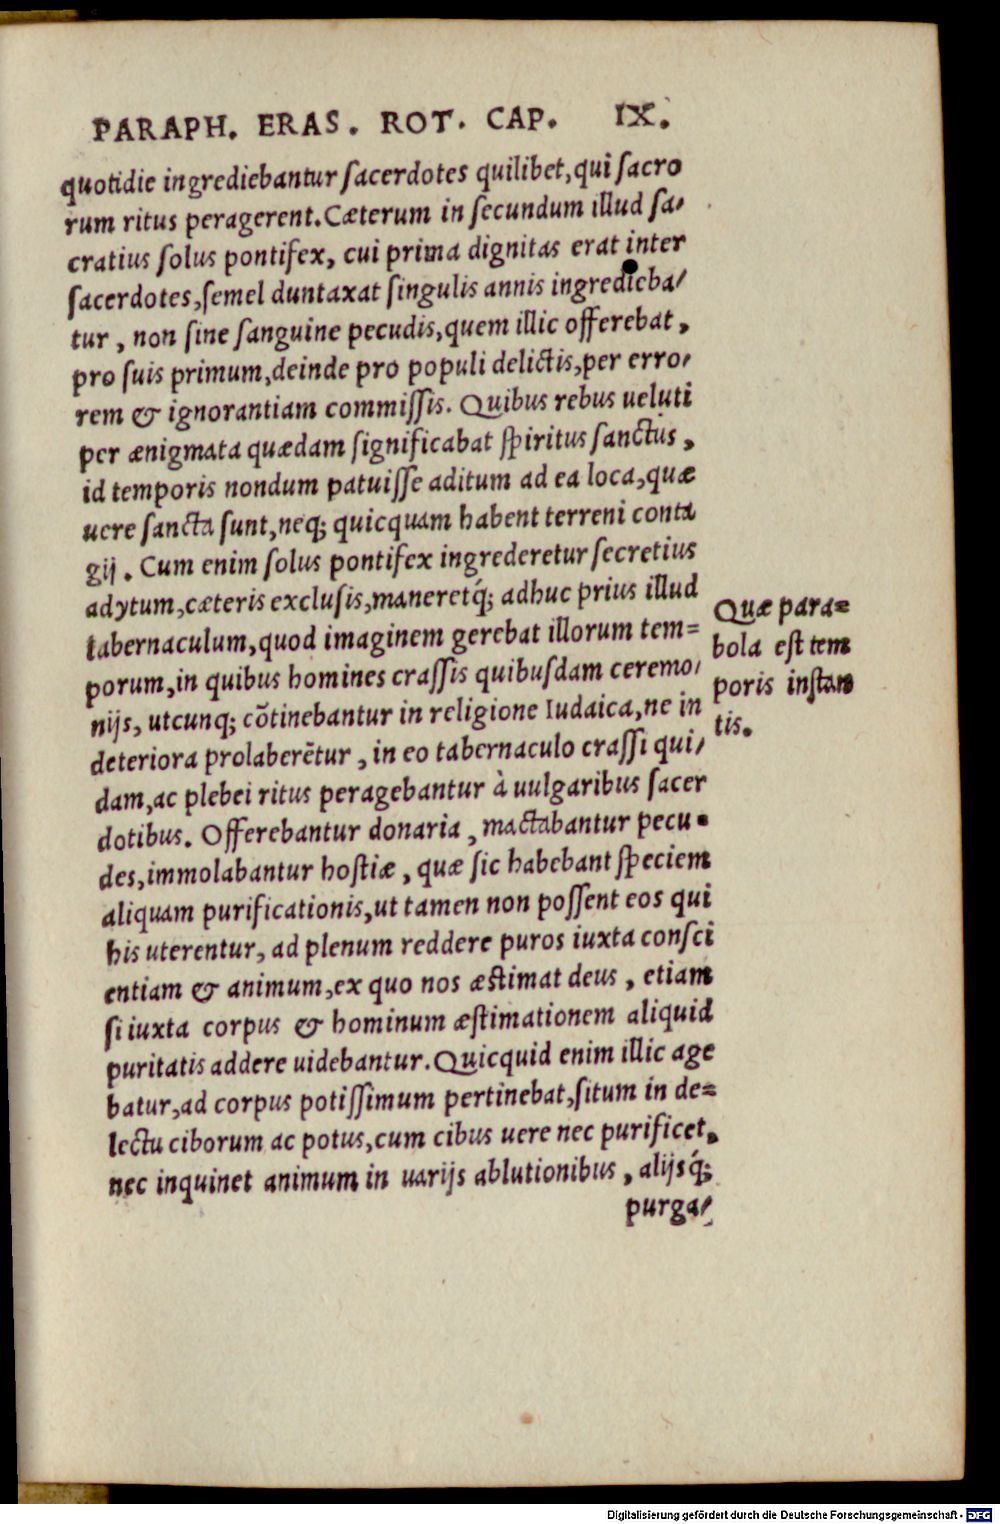 PARAPH. ERAS. ROT. CAP. IX.
quotidie ingrediebantur ſacerdotes quilibet, qui ſacro
rum ritus peragerent. Cæterum in ſecundum illud ſa/
cratius ſolus pontifex, cui prima dignitas erat inter
ſacerdotes, ſemel duntaxat ſingulis annis ingredieba/
tur, non ſine ſanguine pecudis, quem illic offerebat,
pro ſuis primum, deinde pro populi delictis, per erro/
rem & ignorantiam commiſſis. Quibus rebus ueluti
per ænigmata quædam ſignificabat ſpiritus ſanctus,
id temporis nondum patuiſſe aditum ad ea loca, quæ
uere ſancta ſunt, neq; quicquam habent terreni conta
gij. Cum enim ſolus pontifex ingrederetur ſecretius
adytum, cæteris excluſis, maneretq́; adhuc prius illud
tabernaculum, quod imaginem gerebat illorum tem=
porum, in quibus homines craſſis quibuſdam ceremo/
nijs, utcunq; cõtinebantur in religione Iudaica, ne in
deteriora prolaberẽtur, in eo tabernaculo craſſi qui/
dam, ac plebei ritus peragebantur à uulgaribus ſacer
dotibus. Offerebantur donaria, mactabantur pecu=
des, immolabantur hoſtiæ, quæ ſic habebant ſpeciem
aliquam purificationis, ut tamen non poſſent eos qui
his uterentur, ad plenum reddere puros iuxta conſci
entiam & animum, ex quo nos æſtimat deus, etiam
ſi iuxta corpus & hominum æſtimationem aliquid
puritatis addere uidebantur. Quicquid enim illic age
batur, ad corpus potiſſimum pertinebat, ſitum in de=
lectu ciborum ac potus, cum cibus uere nec purificet,
nec inquinet animum in uarijs ablutionibus, alijsq́;
purga/
Quæ para=
bola eſt tem
poris inſtan
tis.
Digitalisierung gefördert durch die Deutsche Forschungsgemeinschaft - DFG